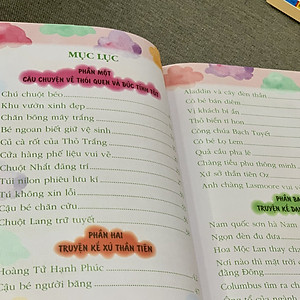 MỤC LỤC
PHẦN MỘT
CÂU CHUYỆN VỀ THÓI QUEN VÀ ĐỨC TÍNH TỐT
Chú chuột béo
Khu vườn xinh đẹp
Chăn bông mây trắng
Bé ngoan biết giữ vệ sinh
Củ cà rốt của Thỏ Trắng
Cửa hàng phế liệu vui vẻ
Chuột Nhất đáng trí
Túi nilon phiêu lưu kí
Tú không xin lỗi
Cậu bé chăn cừu
Chuột Lang trữ tuyết
PHẦN HAI
TRUYỆN KỂ XỨ THẦN TIÊN
Hoàng Tử Hạnh Phúc
Cậu bé người băng
Aladdin và cây đèn thần
Cô bé bán diêm
Con vịt xấu xí
Thỏ biển tí hon
Công chúa Bạch Tuyết
Cô bé Lọ Lem
Quả cầu pha lê
Chàng tiều phu thông minh
Xứ sở thần tiên Oz
Anh chàng Lasmoore vui
PHẦN BA
TRUYỆN KỂ DANH
Nam quốc sơn hà Nam
Ngọn đèn đu đưa
Hoa Mộc Lan thay cha
đẳng Đông
Columbus tìm ra ch